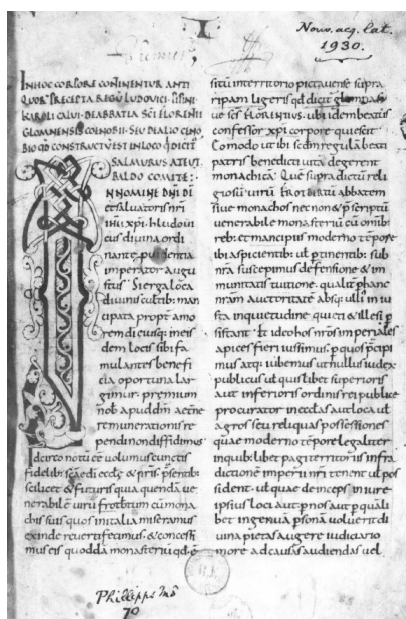 Nouv. acq. lat.
1930.
I
Primus
IN HOC CORPORE CONTINENTUR ANTI
QUORṼ PRECEPTA REGŨ LUDOVICI. PIPINI
KAROLI CALVI. DE ABBATIA SC̃I FLORENTII
GLOMNENSIS COENOBII. SEU DE ALIO CENO
BIO QD̃ CONSTRUCTŨ EST IN LOCO Q̃ DICIT̃
SALMURUS A TEUT
BALDO COMITE:
IN NOMINE DÑI DĨ
ET saluatoris nr̃i
ihũ xp̃i. hludoui
cus diuina ordi
nante prouidentia
imperator augu
stus. Si erga loca
diuinis cultib: man
cipata propt̃ amo
rem di eiusq: in eis
dem locis sibi fa
mulantes benefi
cia oportuna lar
gimur. premium
nob̃ apud dñm aeterne
remunerationis re
pendi non diffidimus
Idcirco notũ eẽ uolumus cunctis
fidelib: scẽ dĩ eccłę & nr̃is. p̃sentib:
scilicet & futuris quia quendã ue
nerabilẽ uirũ frotbertũ cũ mona
chis suis quos in italia miseramus
exinde reuerti fecimus. & concessi
mus eis quoddã monasteriũ qd̃. ẽ
sitũ in territorio pictauense supra
ripam ligeris qd̃ dicit̃ glomna si
ue sc̃s FLORENTIUS. ubi idem beatus
confessor xp̃i corpore quiescit
Eo modo ut ibi scdm̃ regulã beati
patris benedicti uitã degerent
monachicã. Que supra dictũ reli
giosũ uirũ FROTBERTŨ abbatem
siue monachos nec non & p̃scriptũ
uenerabile monasteriũ cũ omnib:
reb: et mancipiis moderno tẽpore
ibi aspicientib: uł p̃tinentib: sub
nr̃a suscepimus defensione & im
munitatis tuitione. qualit̃ p̃ hanc
nr̃am auctoritatẽ absq: ulli iniu
sta inquietudine quieti & illesi p̃
sistant. Et ideo hos nr̃os imperiales
apices fieri iussimus. p̃ quos p̃cipi
mus atq: iubemus ut nullus iudex
publicus uł quislibet superioris
aut inferioris ordinis rei publice
procurator in eccłas aut loca uł
agros seu reliquas possessiones
quae moderno tẽpore legaliter
in quib:libet pagis territoriis infra
dictionẽ imperii nr̃i tenent uł pos
sident. uł quae deinceps in iure
ipsius loci aut p̃ nos aut p̃ quali
bet ingenuã p̃sonã uoluerit di
uina pietas augere iudiciario
more ad causas audiendas uel
Phillipps Ms
70